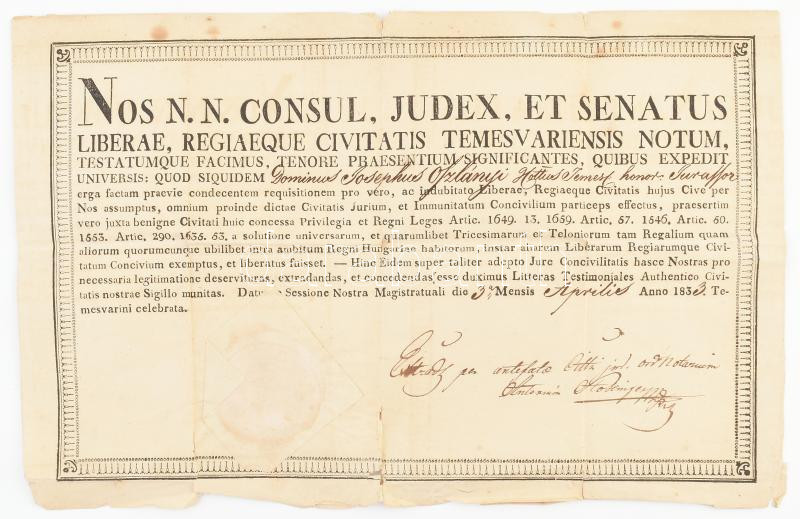 NOS N. N. CONSUL, JUDEX, ET SENATUS
LIBERAE, REGIAEQUE CIVITATIS TEMESVARIENSIS NOTUM,
TESTATUMQUE FACIMUS, TENORE PRAESENTIUM SIGNIFICANTES, QUIBUS EXPEDIT
UNIVERSIS: QUOD SIQUIDEM Dominus Josephus Oszlányi Cottus Temess honor. Jurassor
erga factam praevie condecentem requisitionem pro vero, ac indubitato Liberae, Regiaeque Civitatis hujus Cive per
Nos assumptus, omnium proinde dictae Civitatis Jurium, et Immunitatum Concivilium particeps effectus, praesertim
vero juxta benigne Civitati huic concessa Privilegia et Regni Leges Artic. 1649. 13. 1659. Artic. 57. 1546. Artic. 50.
1553. Artic. 290. 1635. 53. a solutione universarum, et quarumlibet Tricesimarum et Teloniorum tam Regalium quam
aliorum quorumcunque ubilibet intra ambitum Regni Hungariae habitorum, instar aliarum Liberarum Regiarumque Civi-
tatum Concivium exemptus, et liberatus fuisset. — Hinc Eidem super taliter adepto Jure Concivilitatis hasce Nostras pro
necessaria legitimatione deservituras, extradandas, et concedendas esse duximus Litteras Testimoniales Authentico Civi-
tatis nostrae Sigillo munitas. Datum Sessione Nostra Magistratuali die 3ª Mensis Aprilis Anno 1833. Te-
mesvarini celebrata.
per antefatae Cittis jud. ord Notarium
Antonium